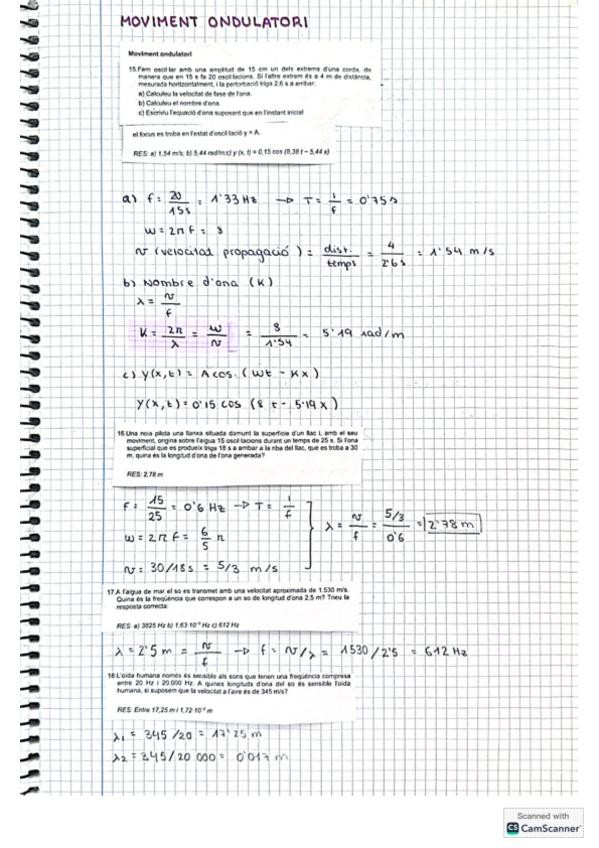 MOVIMENT ONDULATORI
Moviment ondulatori
15.Fem oscil·lar amb una amplitud de 15 cm un dels extrems d'una corda, de
manera que en 15 s fa 20 oscil·lacions. Si l'altre extrem és a 4 m de distància,
mesurada horitzontalment, i la pertorbació triga 2,6 s a arribar:
a) Calculeu la velocitat de fase de l'ona.
b) Calculeu el nombre d'ona.
c) Escriviu l'equació d'ona suposant que en l'instant inicial
el focus es troba en l'estat d'oscil·lació y = A.
RES: a) 1,54 m/s; b) 5,44 rad/m; c) y (x, t) = 0,15 cos (8,38 t – 5,44 x)
a) f = 20/15s = 1'33 Hz → T = 1/f = 0'75 s
w = 2π f = 8
v (velocitat propagació) = dist./temps = 4/2'6 s = 1'54 m/s
b) Nombre d'ona (K)
λ = v/f
K = 2π/λ = w/v = 8/1'54 = 5'19 rad/m
c) y(x,t) = A cos. (wt - Kx)
y(x,t) = 0'15 cos (8 t - 5'19 x)
16.Una noia pilota una llanxa situada damunt la superfície d'un llac i, amb el seu
moviment, origina sobre l'aigua 15 oscil·lacions durant un temps de 25 s. Si l'ona
superficial que es produeix triga 18 s a arribar a la riba del llac, que es troba a 30
m, quina és la longitud d'ona de l'ona generada?
RES: 2,78 m
f = 15/25 = 0'6 Hz → T = 1/f
w = 2π f = 6/5 π
v = 30/18s = 5/3 m/s
λ = v/f = 5/3/0'6 = 2'78 m
17.A l'aigua de mar el so es transmet amb una velocitat aproximada de 1.530 m/s.
Quina és la freqüència que correspon a un so de longitud d'ona 2,5 m? Trieu la
resposta correcta:
RES: a) 3825 Hz b) 1,63·10⁻³ Hz c) 612 Hz
λ = 2'5 m = v/f → f = v/λ = 1530/2'5 = 612 Hz
18.L'oïda humana només és sensible als sons que tenen una freqüència compresa
entre 20 Hz i 20.000 Hz. A quines longituds d'ona del so és sensible l'oïda
humana, si suposem que la velocitat a l'aire és de 345 m/s?
RES: Entre 17,25 m i 1,72·10⁻² m
λ1 = 345/20 = 17'25 m
λ2 = 345/20 000 = 0'017 m
Scanned with
CS CamScanner